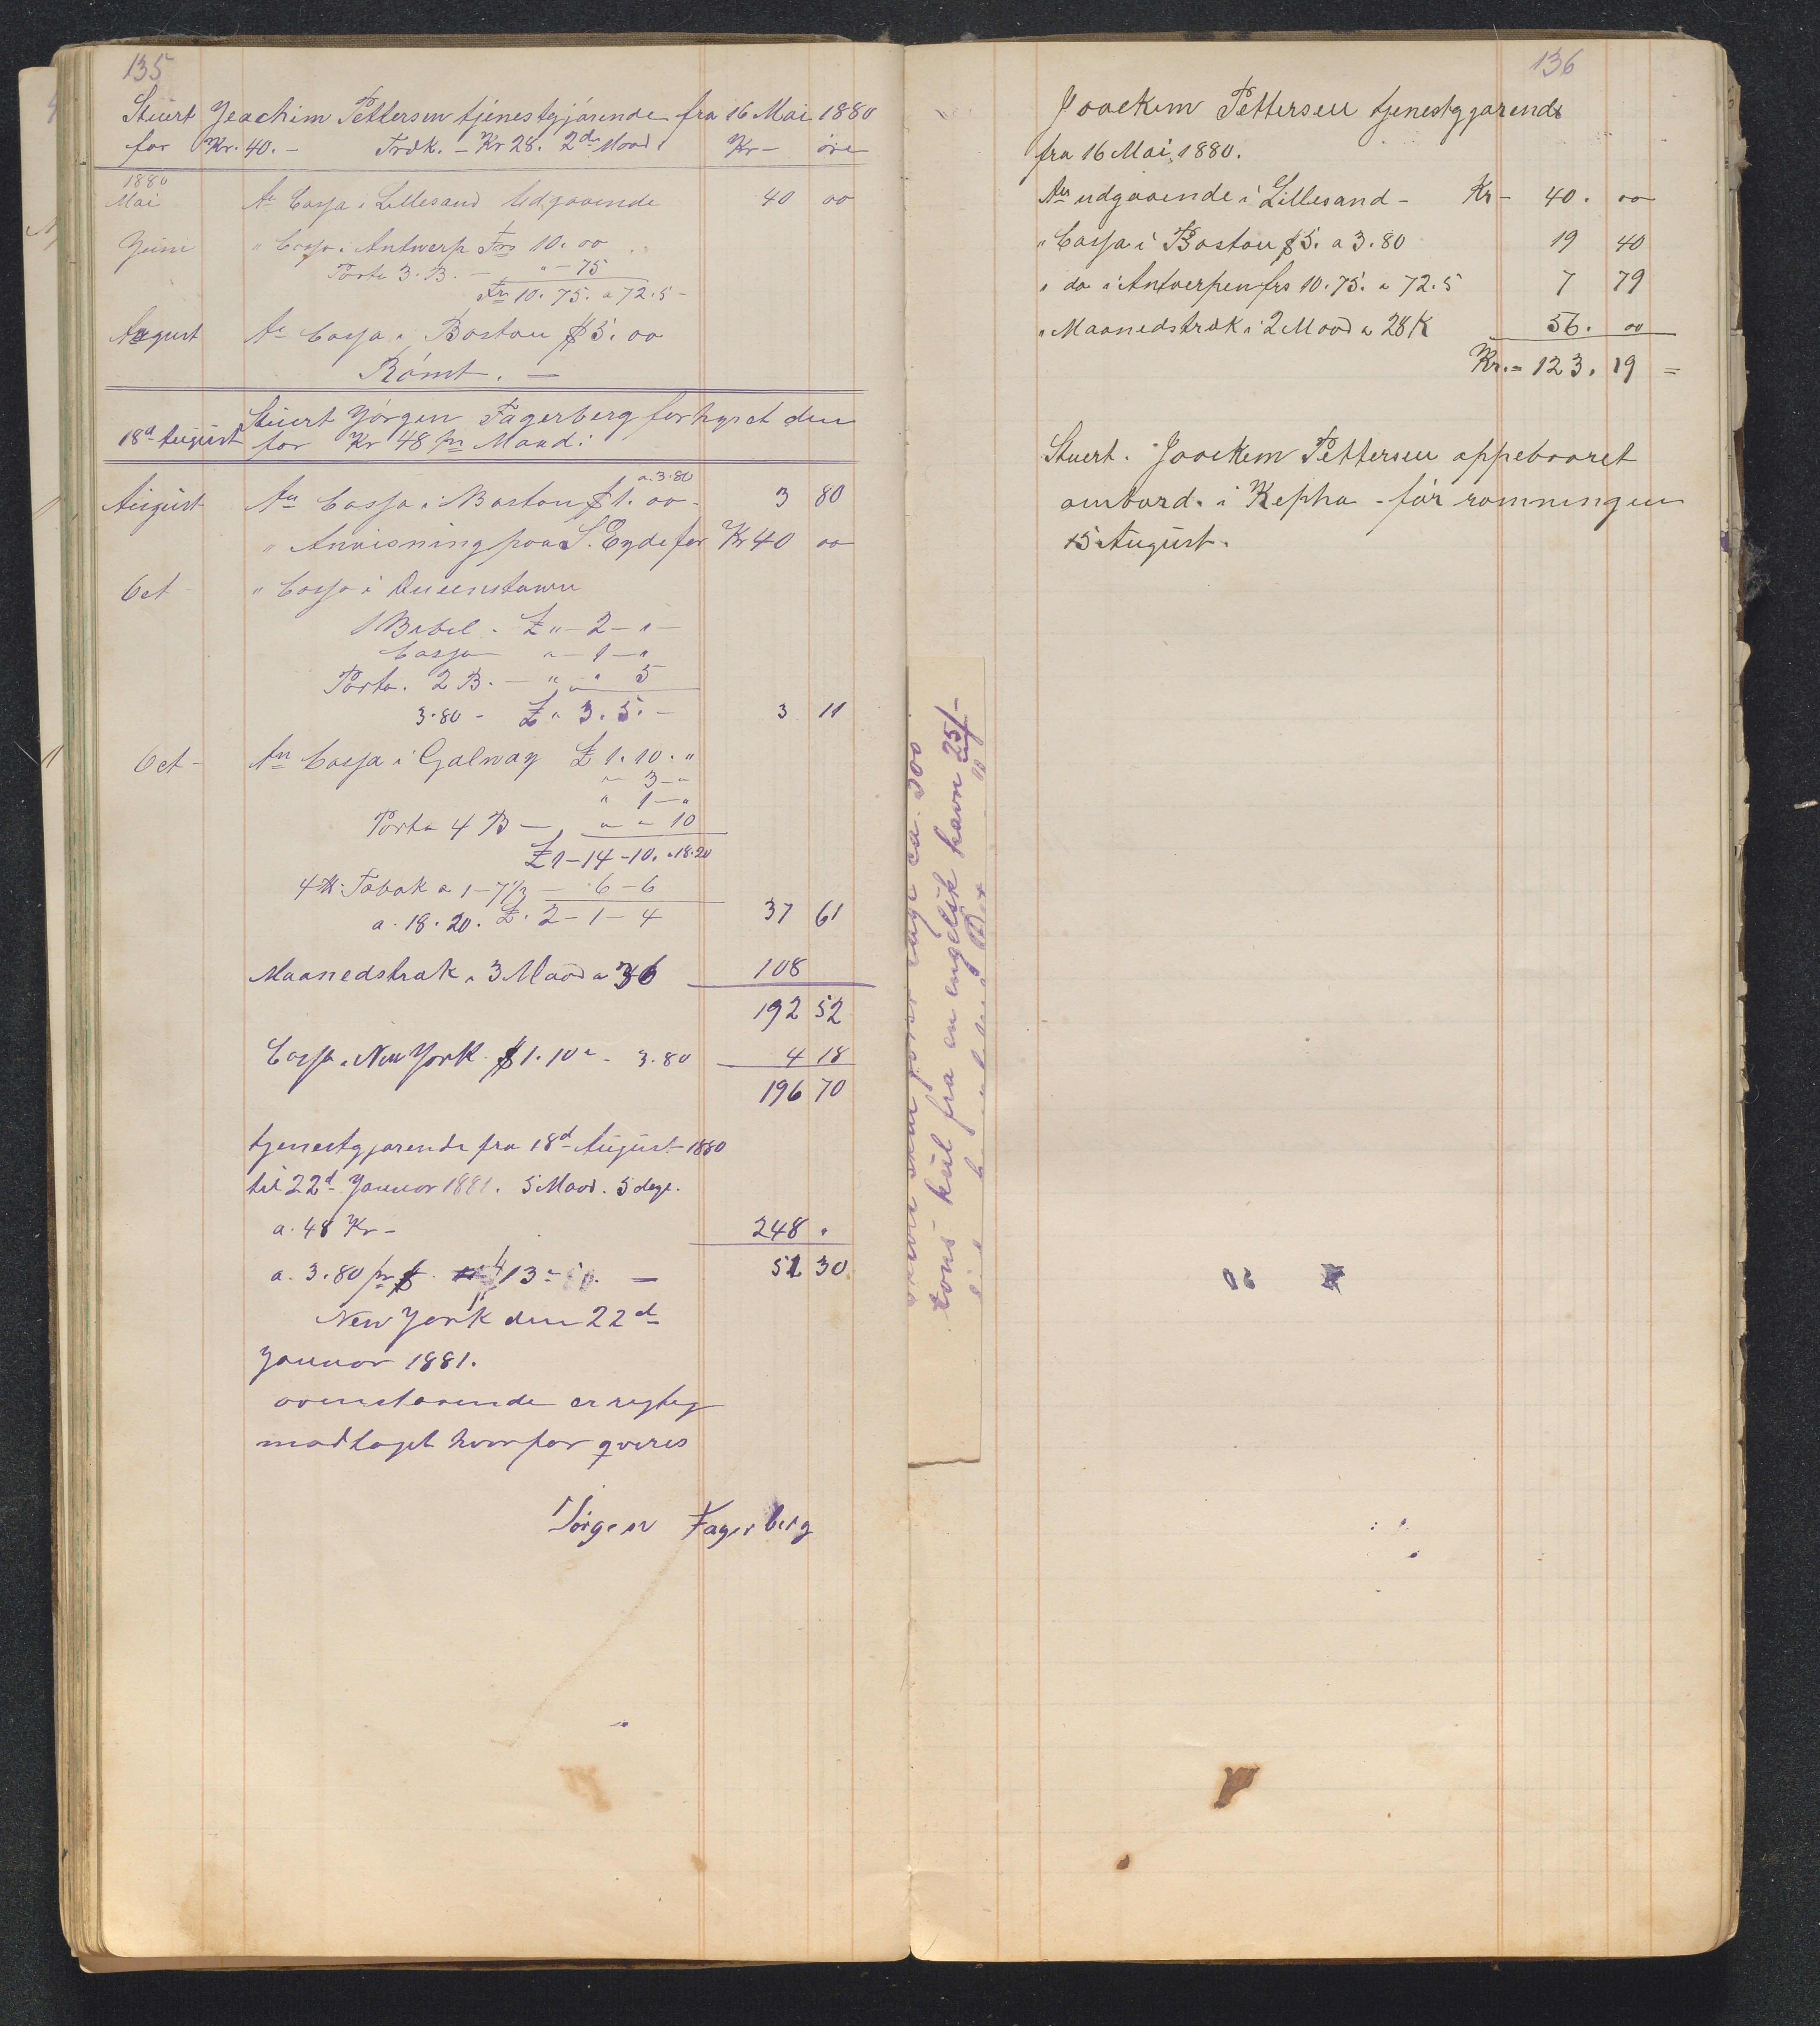 135
Stuert Jeachim Pettersen tjenestgjörende fra 16 Mai 1880
for Kr. 40. - Træk. - Kr 28. 2de Maad. Kr - öre
1880
Mai An Cassa i Lillesand Udgaaende 40 00
Juni " Cassa i Antwerp Frs 10. 00
Porto 3. B. - " - 75
Frs 10. 75. a 72.5 -
August An Cassa i Boston $ 5. 00
Römt. -
Stuert Jörgen Fagerberg forhyret den
18d August for Kr 48 pr Maad.
a. 3.80
August An Cassa i Boston $ 1. 00 - 3 80
" Anvisning paa S. Eyde for Kr 40 00
Oct " Cassa i Queenstown
1 Bibel - £ " - 2 - " -
Cassa " - 1 - "
Porto. 2 B. - " " 5
3.80 - £ " 3. 5. - 3 11
Oct - An Cassa i Galway £ 1. 10. "
" 3 - "
" 1 - "
Porto 4 B - " - 10
£ 1 - 14 - 10. a 18.20
4 ℔: Tobak a 1 - 7½ - 6 - 6
a. 18. 20. £. 2 - 1 - 4 37 61
Maanedstræk i 3 Maad a 36 108
192 52
Cassa i New York $ 1. 10 a - 3.80 4 18
196 70
tjenestgjörende fra 18d August 1880
til 22d Januar 1881. 5 Maad. 5 dage.
a. 48 Kr - 248 "
a. 3.80 pr $ 13 - 50. - 51 30
New York den 22d
Januar 1881.
ovenstaaende er rigtig
modtaget hvorfor qveres
Jörgen Fagerberg
ca. 500
tons kul fra en engelsk havn 25/-
136
Joackim Pettersen tjenestgjörende
fra 16 Mai 1880.
An udgaaende i Lillesand - Kr - 40. 00
" Cassa i Boston $ 5. a 3.80 19 40
" do i Antverpen frs 10.75. a 72.5 7 79
" Maanedstræk i 2 Maad a 28 K 56. 00
Kr. = 123. 19 =
Stuert. Joackim Pettersen oppebaaret
ombord. i Kepha - för römningen
15 August.